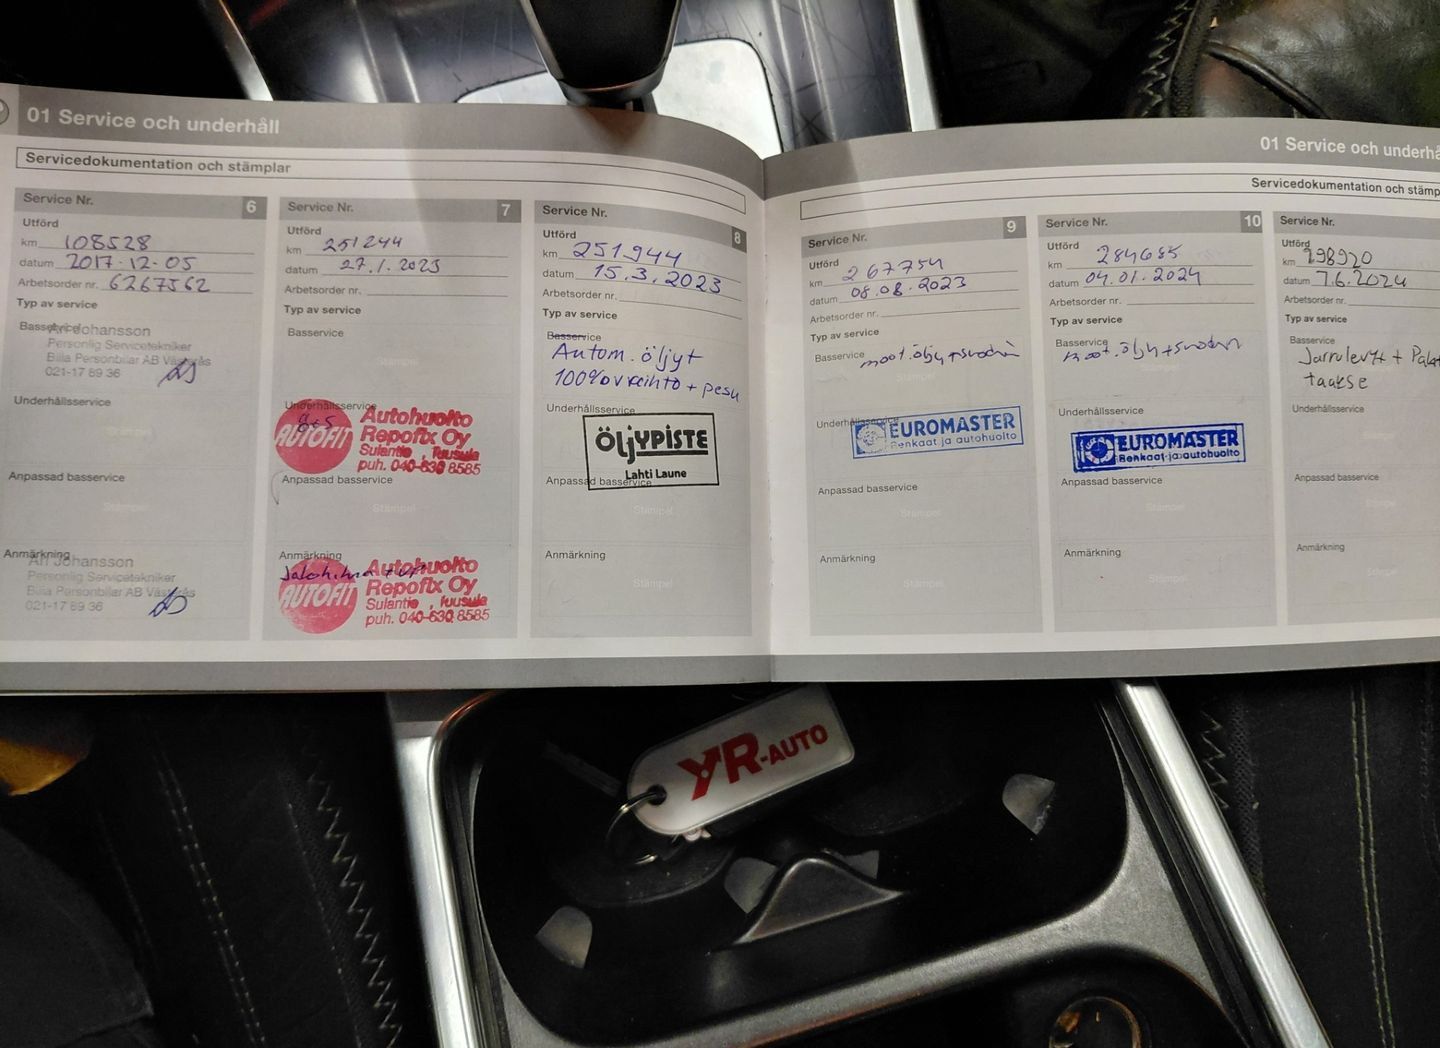 01 Service och underhåll
Servicedokumentation och stämplar
Service Nr. 6
Utförd
km 108528
datum 2017-12-05
Arbetsorder nr. 6267562
Typ av service
Basservice
Ari Johansson
Personlig Servicetekniker
Bilia Personbilar AB Västerås
021-17 89 36
Underhållsservice
Stämpel
Anpassad basservice
Stämpel
Anmärkning
Ari Johansson
Personlig Servicetekniker
Bilia Personbilar AB Västerås
021-17 89 36
Service Nr. 7
Utförd
km 251244
datum 27.1.2023
Arbetsorder nr.
Typ av service
Basservice
Stämpel
Underhållsservice
AUTOFIT
Autohuolto
Repofix Oy
Sulantie , Tuusula
puh. 040-630 8585
Anpassad basservice
Stämpel
Anmärkning
AUTOFIT
Autohuolto
Repofix Oy
Sulantie , Tuusula
puh. 040-630 8585
Service Nr. 8
Utförd
km 251944
datum 15.3.2023
Arbetsorder nr.
Typ av service
Basservice
Autom. öljyt
100% vaihto + pesu
Underhållsservice
ÖLJYPISTE
Lahti Laune
Anpassad basservice
Stämpel
Anmärkning
Stämpel
01 Service och underhå
Servicedokumentation och stämp
Service Nr. 9
Utförd
km 267754
datum 08.08.2023
Arbetsorder nr.
Typ av service
Basservice moot.öljy+suodatin
Stämpel
Underhållsservice
EUROMASTER
Renkaat ja autohuolto
Anpassad basservice
Stämpel
Anmärkning
Stämpel
Service Nr. 10
Utförd
km 284685
datum 04.01.2024
Arbetsorder nr.
Typ av service
Basservice moot.öljy+suodatin
Stämpel
Underhållsservice
EUROMASTER
Renkaat ja autohuolto
Anpassad basservice
Stämpel
Anmärkning
Stämpel
Service Nr.
Utförd
km 298920
datum 7.6.2024
Arbetsorder nr.
Typ av service
Basservice
Jarrulevyt + Palat
taakse
Underhållsservice
Stämpel
Anpassad basservice
Stämpel
Anmärkning
Stämpel
YR-AUTO